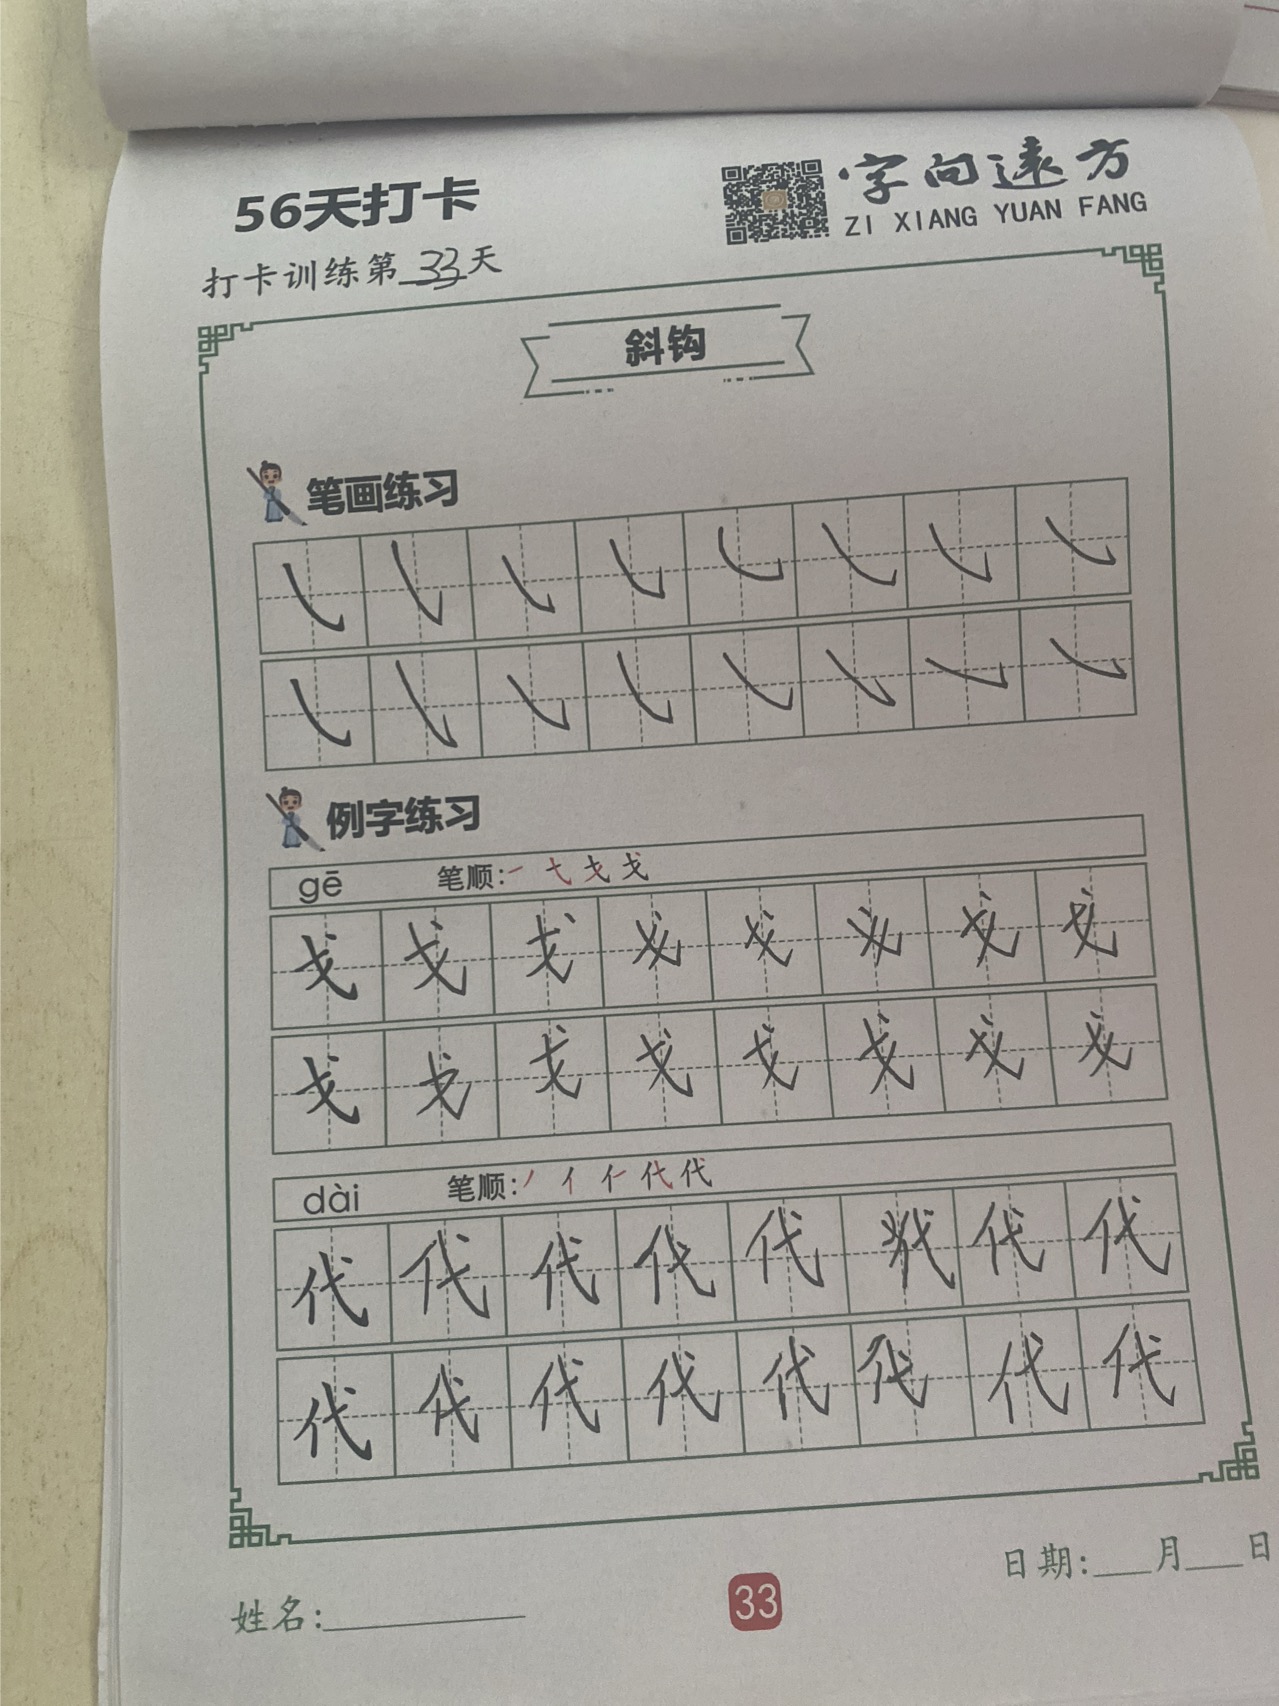 56天打卡
字向远方
ZI XIANG YUAN FANG
打卡训练第33天
斜钩
笔画练习
㇂㇂㇂㇂㇂㇂㇂㇂
㇂㇂㇂㇂㇂㇂㇂㇂
例字练习
gē 笔顺: 一 弋 戈 戈
戈戈戈戈戈戈戈戈
戈戈戈戈戈戈戈戈
dài 笔顺: 丿 亻 仁 代 代
代代代代代代代代
代代代代代代代代
日期:___月___日
姓名:
33